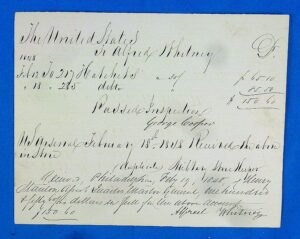 The United States
To Alfred Whitney Dr.
1848
Feb 12 To 217 Hatchets a 30¢ $ 65.10
" 18 " 285 ditto 85.50
$ 150.60
Passed Inspection
George Cooper
US Arsenal February 18th 1848 Received the above
in store
Military Store Keeper
Philadelphia, Feby 19, 1848 Henry
Stanton Asst Quarter Master General one hundred
& fifty dollars in full for the above account
$ 150.60 Alfred Whitney